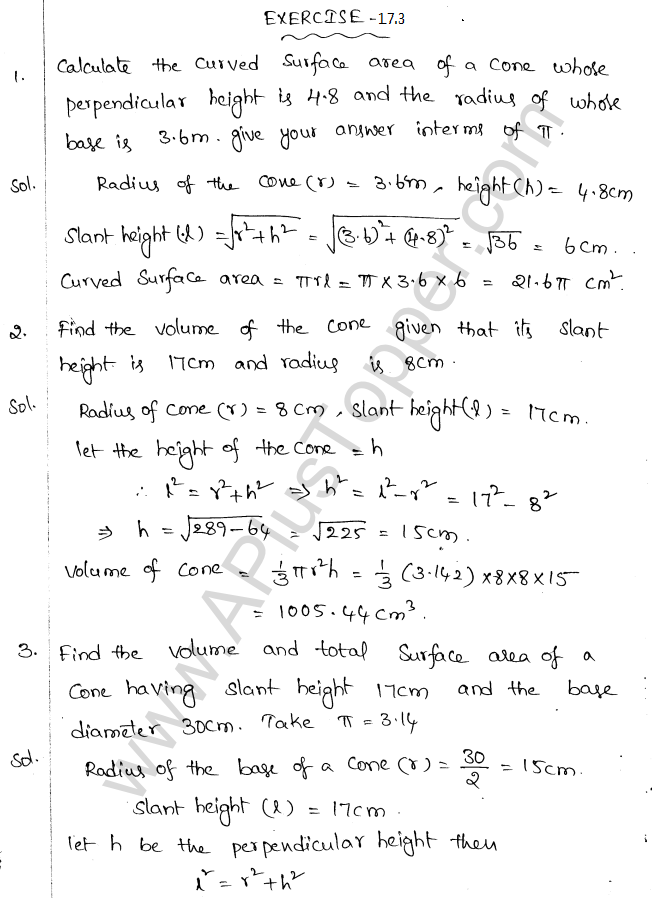 EXERCISE - 17.3
1. Calculate the curved surface area of a cone whose
perpendicular height is 4.8 and the radius of whose
base is 3.6m. give your answer interms of π.
Sol. Radius of the cone (r) = 3.6m, height (h) = 4.8cm
Slant height (l) = √r²+h² = √(3.6)²+(4.8)² = √36 = 6cm.
Curved Surface area = πrl = π × 3.6 × 6 = 21.6π cm².
2. Find the volume of the cone given that its slant
height is 17cm and radius is 8cm.
Sol. Radius of cone (r) = 8cm, slant height (l) = 17cm.
let the height of the cone = h
∴ l² = r²+h² ⇒ h² = l²-r² = 17² - 8²
⇒ h = √289-64 = √225 = 15cm.
Volume of cone = 1/3 πr²h = 1/3 (3.142) × 8 × 8 × 15
= 1005.44cm³.
3. Find the volume and total surface area of a
cone having slant height 17cm and the base
diameter 30cm. Take π = 3.14
Sol. Radius of the base of a cone (r) = 30/2 = 15cm.
Slant height (l) = 17cm.
let h be the perpendicular height then
l² = r²+h²
www.APlusTopper.com